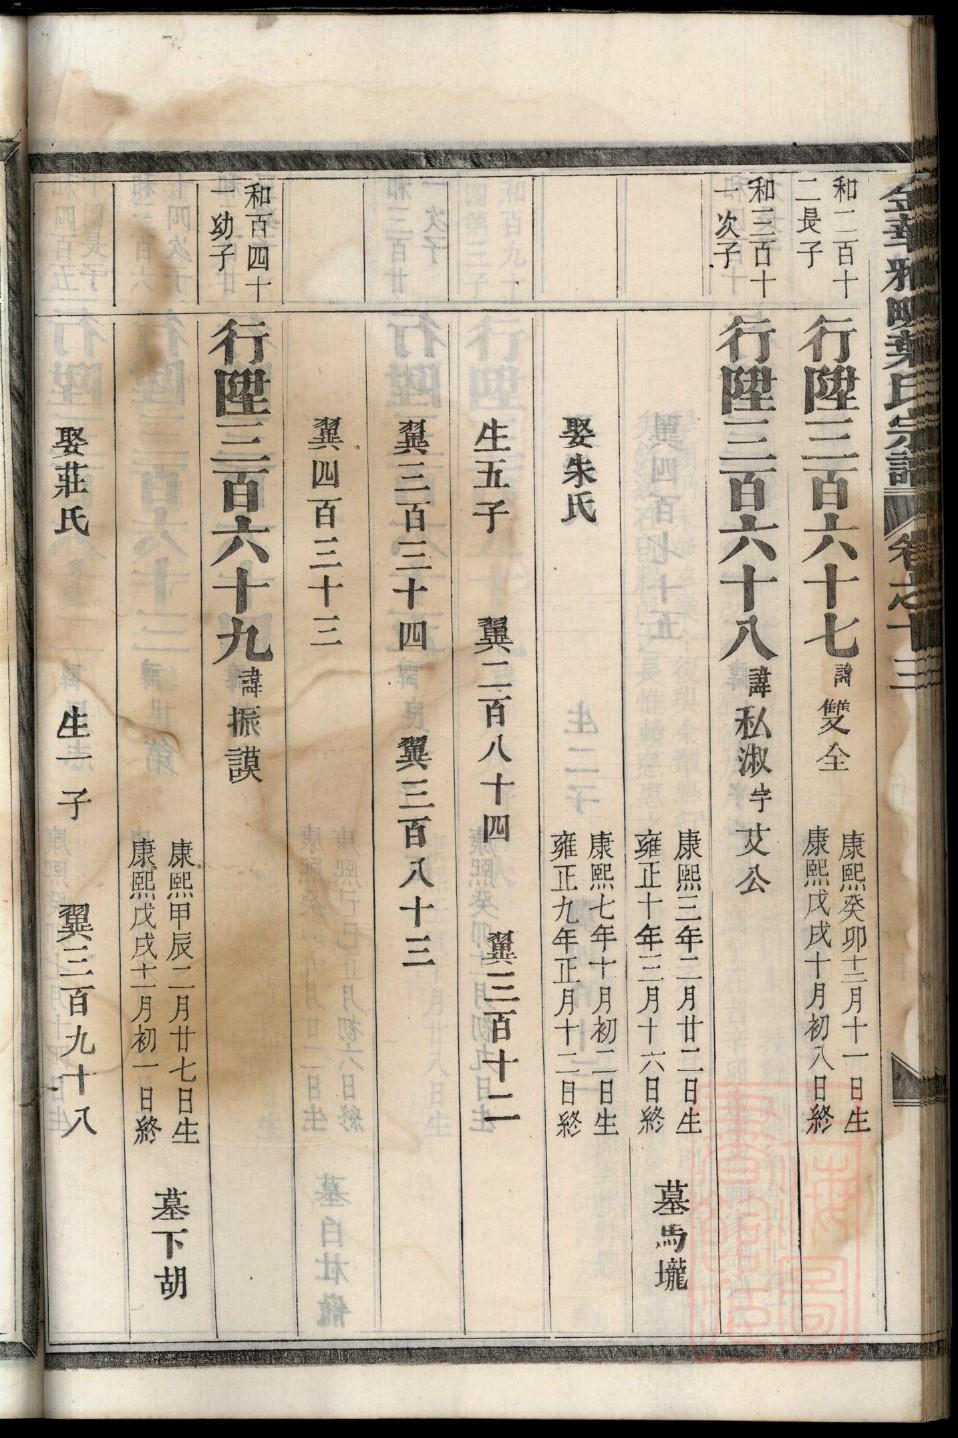 金華雅畈葉氏宗譜 卷之十三
和二百十二長子
行陞三百六十七 諱雙全
康熙癸卯十二月十一日生
康熙戊戌十月初八日終
和三百十一次子
行陞三百六十八 諱私淑 字艾公
康熙三年二月廿二日生
雍正十年三月十六日終
墓馬壠
娶朱氏
康熙七年十月初二日生
雍正九年正月十二日終
生五子 翼二百八十四 翼三百十二
翼三百三十四 翼三百八十三
翼四百三十三
和百四十一幼子
行陞三百六十九 諱振謨
康熙甲辰二月廿七日生
康熙戊戌十一月初一日終
墓下胡
娶莊氏 生一子 翼三百九十八